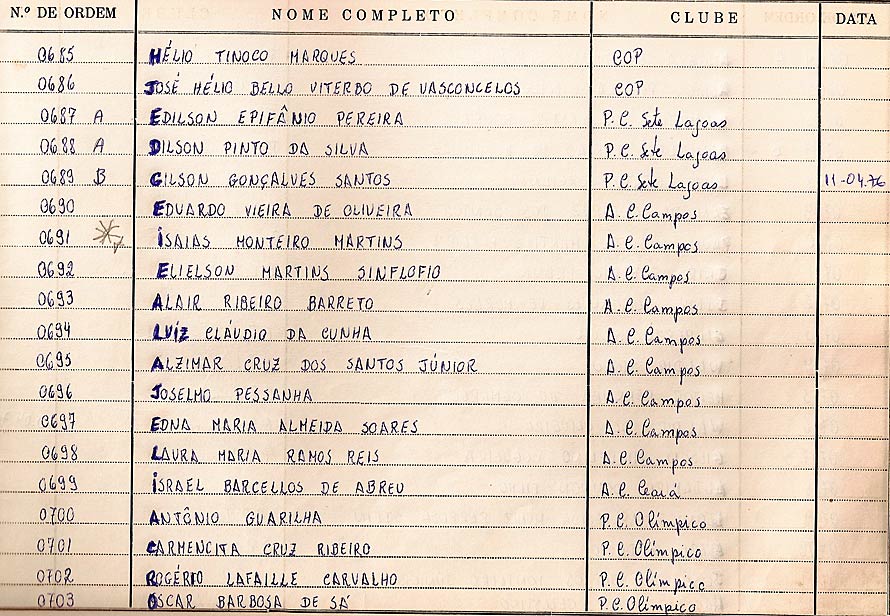 N.º DE ORDEM NOME COMPLETO CLUBE DATA
0685 HÉLIO TINOCO MARQUES COP
0686 JOSÉ HÉLIO BELLO VITERBO DE VASCONCELOS COP
0687 A EDILSON EPIFÂNIO PEREIRA P. C. Sete Lagoas
0688 A DILSON PINTO DA SILVA P. C. Sete Lagoas
0689 B GILSON GONÇALVES SANTOS P. C. Sete Lagoas 11-04.76
0690 EDUARDO VIEIRA DE OLIVEIRA A. C. Campos
0691 ISAIAS MONTEIRO MARTINS A. C. Campos
0692 ELIELSON MARTINS SINFLOFIO A. C. Campos
0693 ALAIR RIBEIRO BARRETO A. C. Campos
0694 LUÍZ CLÁUDIO DA CUNHA A. C. Campos
0695 ALZIMAR CRUZ DOS SANTOS JÚNIOR A. C. Campos
0696 JOSELMO PESSANHA A. C. Campos
0697 EDNA MARIA ALMEIDA SOARES A. C. Campos
0698 LAURA MARIA RAMOS REIS A. C. Campos
0699 ISRAEL BARCELLOS DE ABREU A. C. Ceará
0700 ANTÔNIO GUARILHA P. C. Olímpico
0701 CARMENCITA CRUZ RIBEIRO P. C. Olímpico
0702 ROGÉRIO LAFAILLE CARVALHO P. C. Olímpico
0703 OSCAR BARBOSA DE SÁ P. C. Olímpico